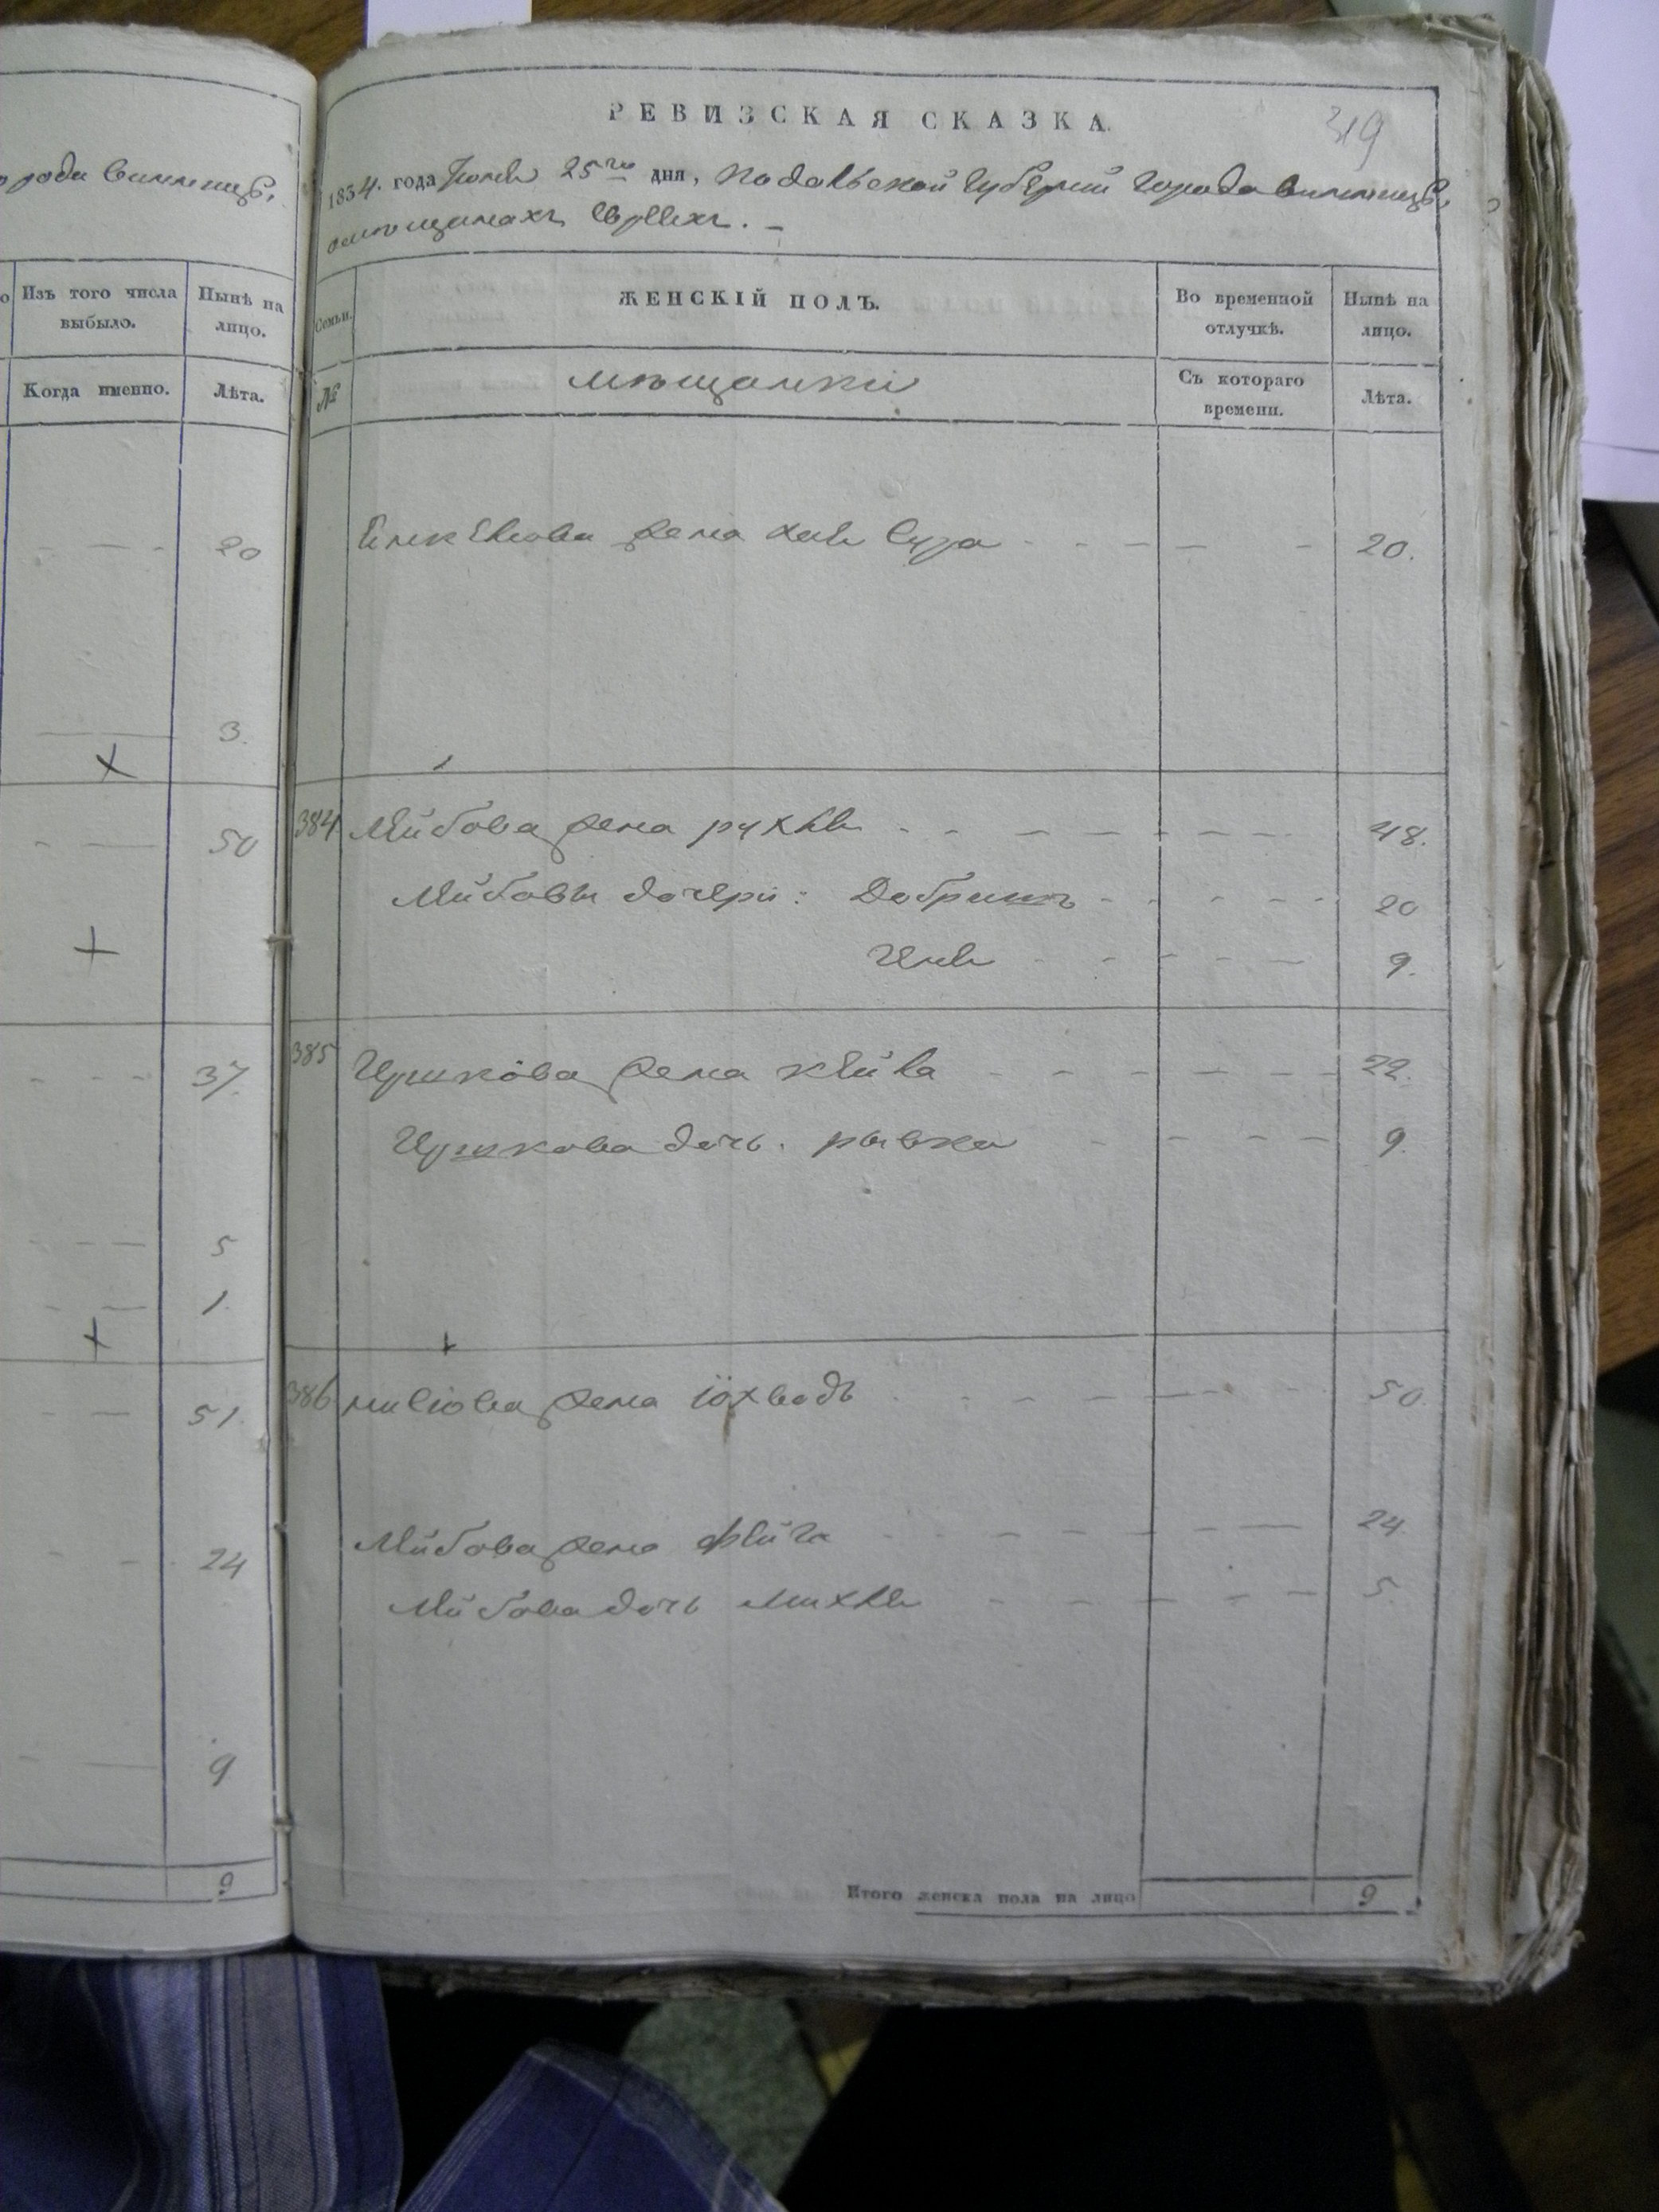 рода Винницы,
Изъ того числа выбыло.
Нынѣ на лицо.
Когда именно.
Лѣта.
20
3.
50
37.
5
1.
51.
24
9
9
РЕВИЗСКАЯ СКАЗКА.
319
1834. года 25го дня, Подольской Губерніи Города Винницы,
омѣщанахъ Евреяхъ.
Семьи.
ЖЕНСКІЙ ПОЛЪ.
Во временной отлучкѣ.
Нынѣ на лицо.
№
мѣщанки
Съ котораго времени.
Лѣта.
жена Хая Сура 20.
384 Лейбова жена рухля 48.
Лейбовы дочери: Добришъ 20
9.
385 Ершкова жена Кейла 22.
Ершкова дочь. рывка 9.
386 жена іохвадъ 50.
Лейбова жена Фейга 24.
Лейбова дочь Михля 5.
Итого женска пола на лицо 9